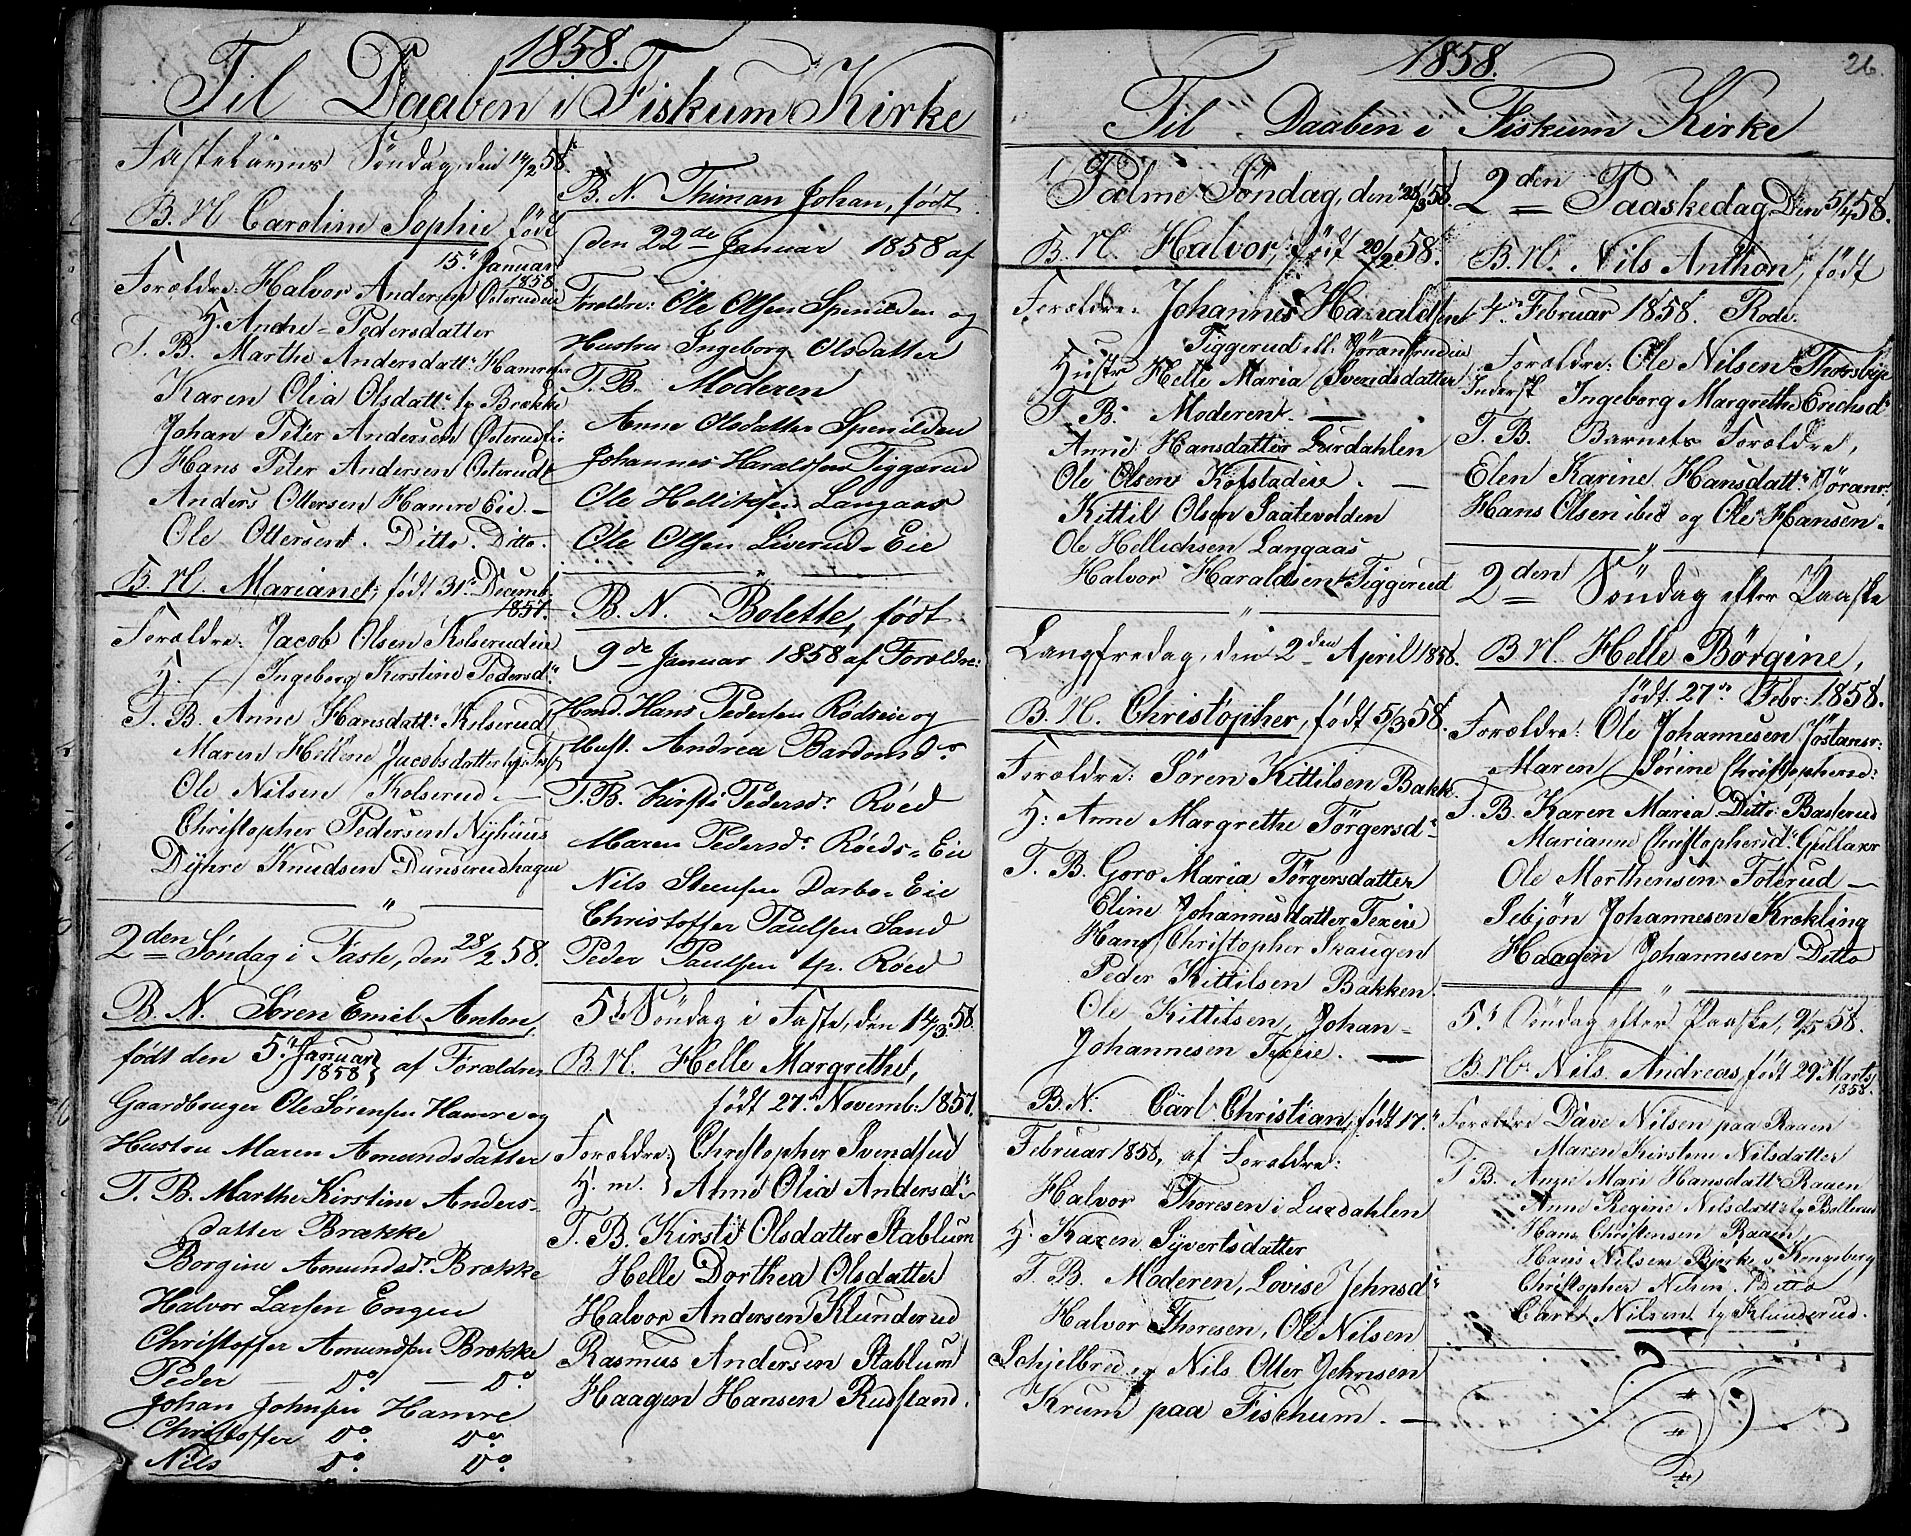 1858.
Til Daaben i Fiskum Kirke
Fastelavns Søndag, den 14/2 58.
B. N. Caroline Sophie født
15.d Januar
1858
Forældre: Halvor Andersen Østerudeie
H. Anche Pedersdatter
T. B. Marthe Andersdatt: Hamre
Karen Olia Olsdatt: tp Brække
Johan Peter Andersen Østerudeie
Hans Peter Andersen Østerud
Anders Ottersen Hamre Eie. –
Ole Ottersen. Ditto. Ditto.
B. N. Mariane, født 31.d Decemb.
1857.
Forældre: Jacob Olsen Kolserudeie
H. – Ingeborg Kirstine Pedersd:
T. B. Anne Hansdatt: Kolserud
Maren Hellene Jacobsdatter
Ole Nilsen Kolserud. –
Christopher Pedersen Nyhuus
Dyhre Knudsen Dunserudhagen
2den Søndag i Faste, den 28/2 58.
B. N. Søren Emil Anton,
født den 5.d Januar 1858 } af Forældre
Gaardbruger Ole Sørensen Hamre og
Hustru Maren Amundsdatter
T. B. Marthe Kirstine Anders-
datter Brække
Borgine Amundsd: Brække
Halvor Larsen Engen
Christoffer Amundsen Brække
Peder — Do — Do
Johan Johnsen Hamre
Christoffer Do. Do.
Nils Do. Do.
B. N. Thiman Johan, født
den 22de Januar 1858 af
Foreldre: Ole Olsen Spenilden og
Hustru Ingeborg Olsdatter
T. B. Moderen
Anne Olsdatter Spenilden
Johannes Haraldsen Tiggerud
Ole Helliksen Langaas
Ole Olsen Liverud-Eie
B. N. Bolette, født
9de Januar 1858 af Forældre:
Hmd. Hans Pedersen Rødseie og
Hust. Andrea Bardomsd:
T. B. Kirsti Pedersd: Røed
Maren Pedersd: Røeds-Eie
Nils Steensen Darbo-Eie
Christoffer Paulsen Sand
Peder Paulsen tp. Røed
5.te Søndag i Faste, den 14/3 58.
B. N. Helle Margrethe,
født 27.d Novemb: 1857.
Forældre: Christopher Svendsen
H. m. } Anne Olia Andersd:
T. B. Kirsti Olsdatter Stablum
Helle Dorthea Olsdatter
Halvor Andersen Klunderud
Rasmus Andersen Stablum
Haagen Hansen Rudstand.
1858.
26.
Til Daaben i Fiskum Kirke
Palme Søndag, den 28/3 58.
B. N. Halvor, født 20/2 58.
Forældre: Johannes Haraldsen
Tiggerud ell. Jøransrudeie
Hustr Helle Maria Sveridsdatter
T. B. Moderen. —
Anne Hansdatter Lurdahlen
Ole Olsen Kofstadeie. —
Kittil Olsen Saatevolden
Ole Hellichsen Langaas
Halvor Haraldsen Tiggerud
Langfredag, den 2den April 1858.
B. N. Christopher, født 5/3 58.
Forældre: Søren Kittilsen Bakk.
H: Anne Margrethe Törgersd:
T. B. Goro Maria Törgersdatter
Eline Johannesdatter Texeie
Hans Christopher Skaugen
Peder Kittilsen Bakken.
Ole Kittilsen, Johan-
Johannesen Texeie. —
B. N: Carl Christian, født 17.d
Februar 1858, af Forældre:
Halvor Thoresen i Lurdahlen
H. Karen Syvertsdatter
T. B. Moderen, Lovise Jehnsd:
Halvor Thoresen, Ole Nilsen
Schjelbred og Nils Otter Jehnsen
Krum paa Fischum. —
2den Paaskedag, Den 5/4 58.
B. N. Nils Anthon, født
4.d Februar 1858. Rode.
Forældre: Ole Nilsen Thorsbye
Inderst Ingeborg Margrethe Erichsd:
T. B. Barnets Forældre,
Elen Karine Hansdatt: Jøransr:
Hans Olsen ibid og Ole Hansen.
2den Søndag efter Paaske
B. N. Helle Børgine,
født 27.d Febr: 1858.
Forældre: Ole Johannesen Jøstansr:
Maren Sørine Christophersd:
T. B. Karen Maria Ditto Basterud
Marianne Christophersd: Gullaxr
Ole Morthensen Foterud —
Sebjön Johannesen Krekling
Haagen Johannesen Ditto
5.d Søndag efter Paaske, 9/5 58.
B. N. Nils Andreas, født 29.d Marts
1858.
Forældre Dave Nilsen paa Raaen
Maren Kirstine Nilsdatter
T. B. Anne Mari Hansdatt: Raaen
Anne Regine Nilsdatt: tp Bollerud
Hans Christensen Raaen
Hans Nilsen Bjerke v. Kongsberg
Christopher Nilsen. Ditto
Carl Nilsen tp Klunderud.